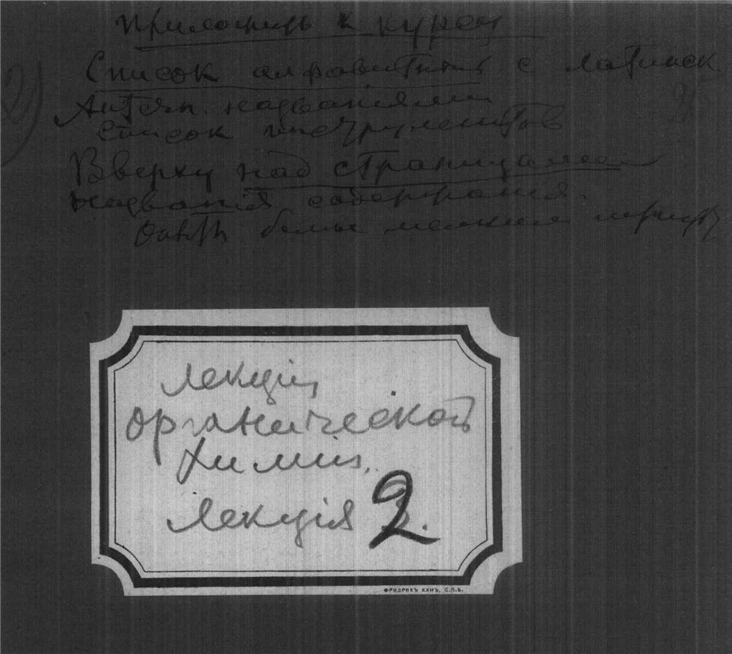 Приложить к курсу
Список алфавитный с латинск.
названиями
Список инструментов
Вверху над страницами
названия содержания.
более мелкий шрифт
2)
Лекции
органической
химии.
Лекція 2.
ФРИДРИХЪ КАНЪ. С.П.Б.